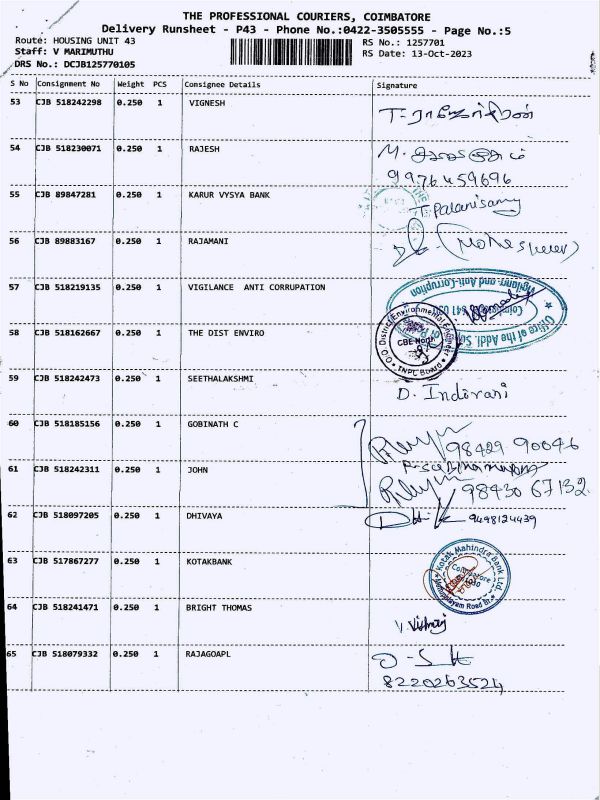 THE PROFESSIONAL COURIERS, COIMBATORE
Delivery Runsheet - P43 - Phone No.:0422-3505555 - Page No.:5
Route: HOUSING UNIT 43 RS No.: 1257701
Staff: V MARIMUTHU RS Date: 13-Oct-2023
DRS No.: DCJB125770105
S No Consignment No Weight PCS Consignee Details Signature
53 CJB 518242298 0.250 1 VIGNESH
54 CJB 518230071 0.250 1 RAJESH
9976459696
55 CJB 89847281 0.250 1 KARUR VYSYA BANK T. Palanisamy
56 CJB 89883167 0.250 1 RAJAMANI
57 CJB 518219135 0.250 1 VIGILANCE ANTI CORRUPATION
Office of the Addl. Vigilance and Anti-Corruption
58 CJB 518162667 0.250 1 THE DIST ENVIRO
District Environmental Engineer TNPC Board
59 CJB 518242473 0.250 1 SEETHALAKSHMI D. Indirani
60 CJB 518185156 0.250 1 GOBINATH C 98429 90046
61 CJB 518242311 0.250 1 JOHN 98430 67132
62 CJB 518097205 0.250 1 DHIVAYA 9498124439
63 CJB 517867277 0.250 1 KOTAKBANK
Kotak Mahindra Bank Ltd. Coimbatore Mettupalayam Road Br.
64 CJB 518241471 0.250 1 BRIGHT THOMAS
65 CJB 518079332 0.250 1 RAJAGOAPL
8220263524